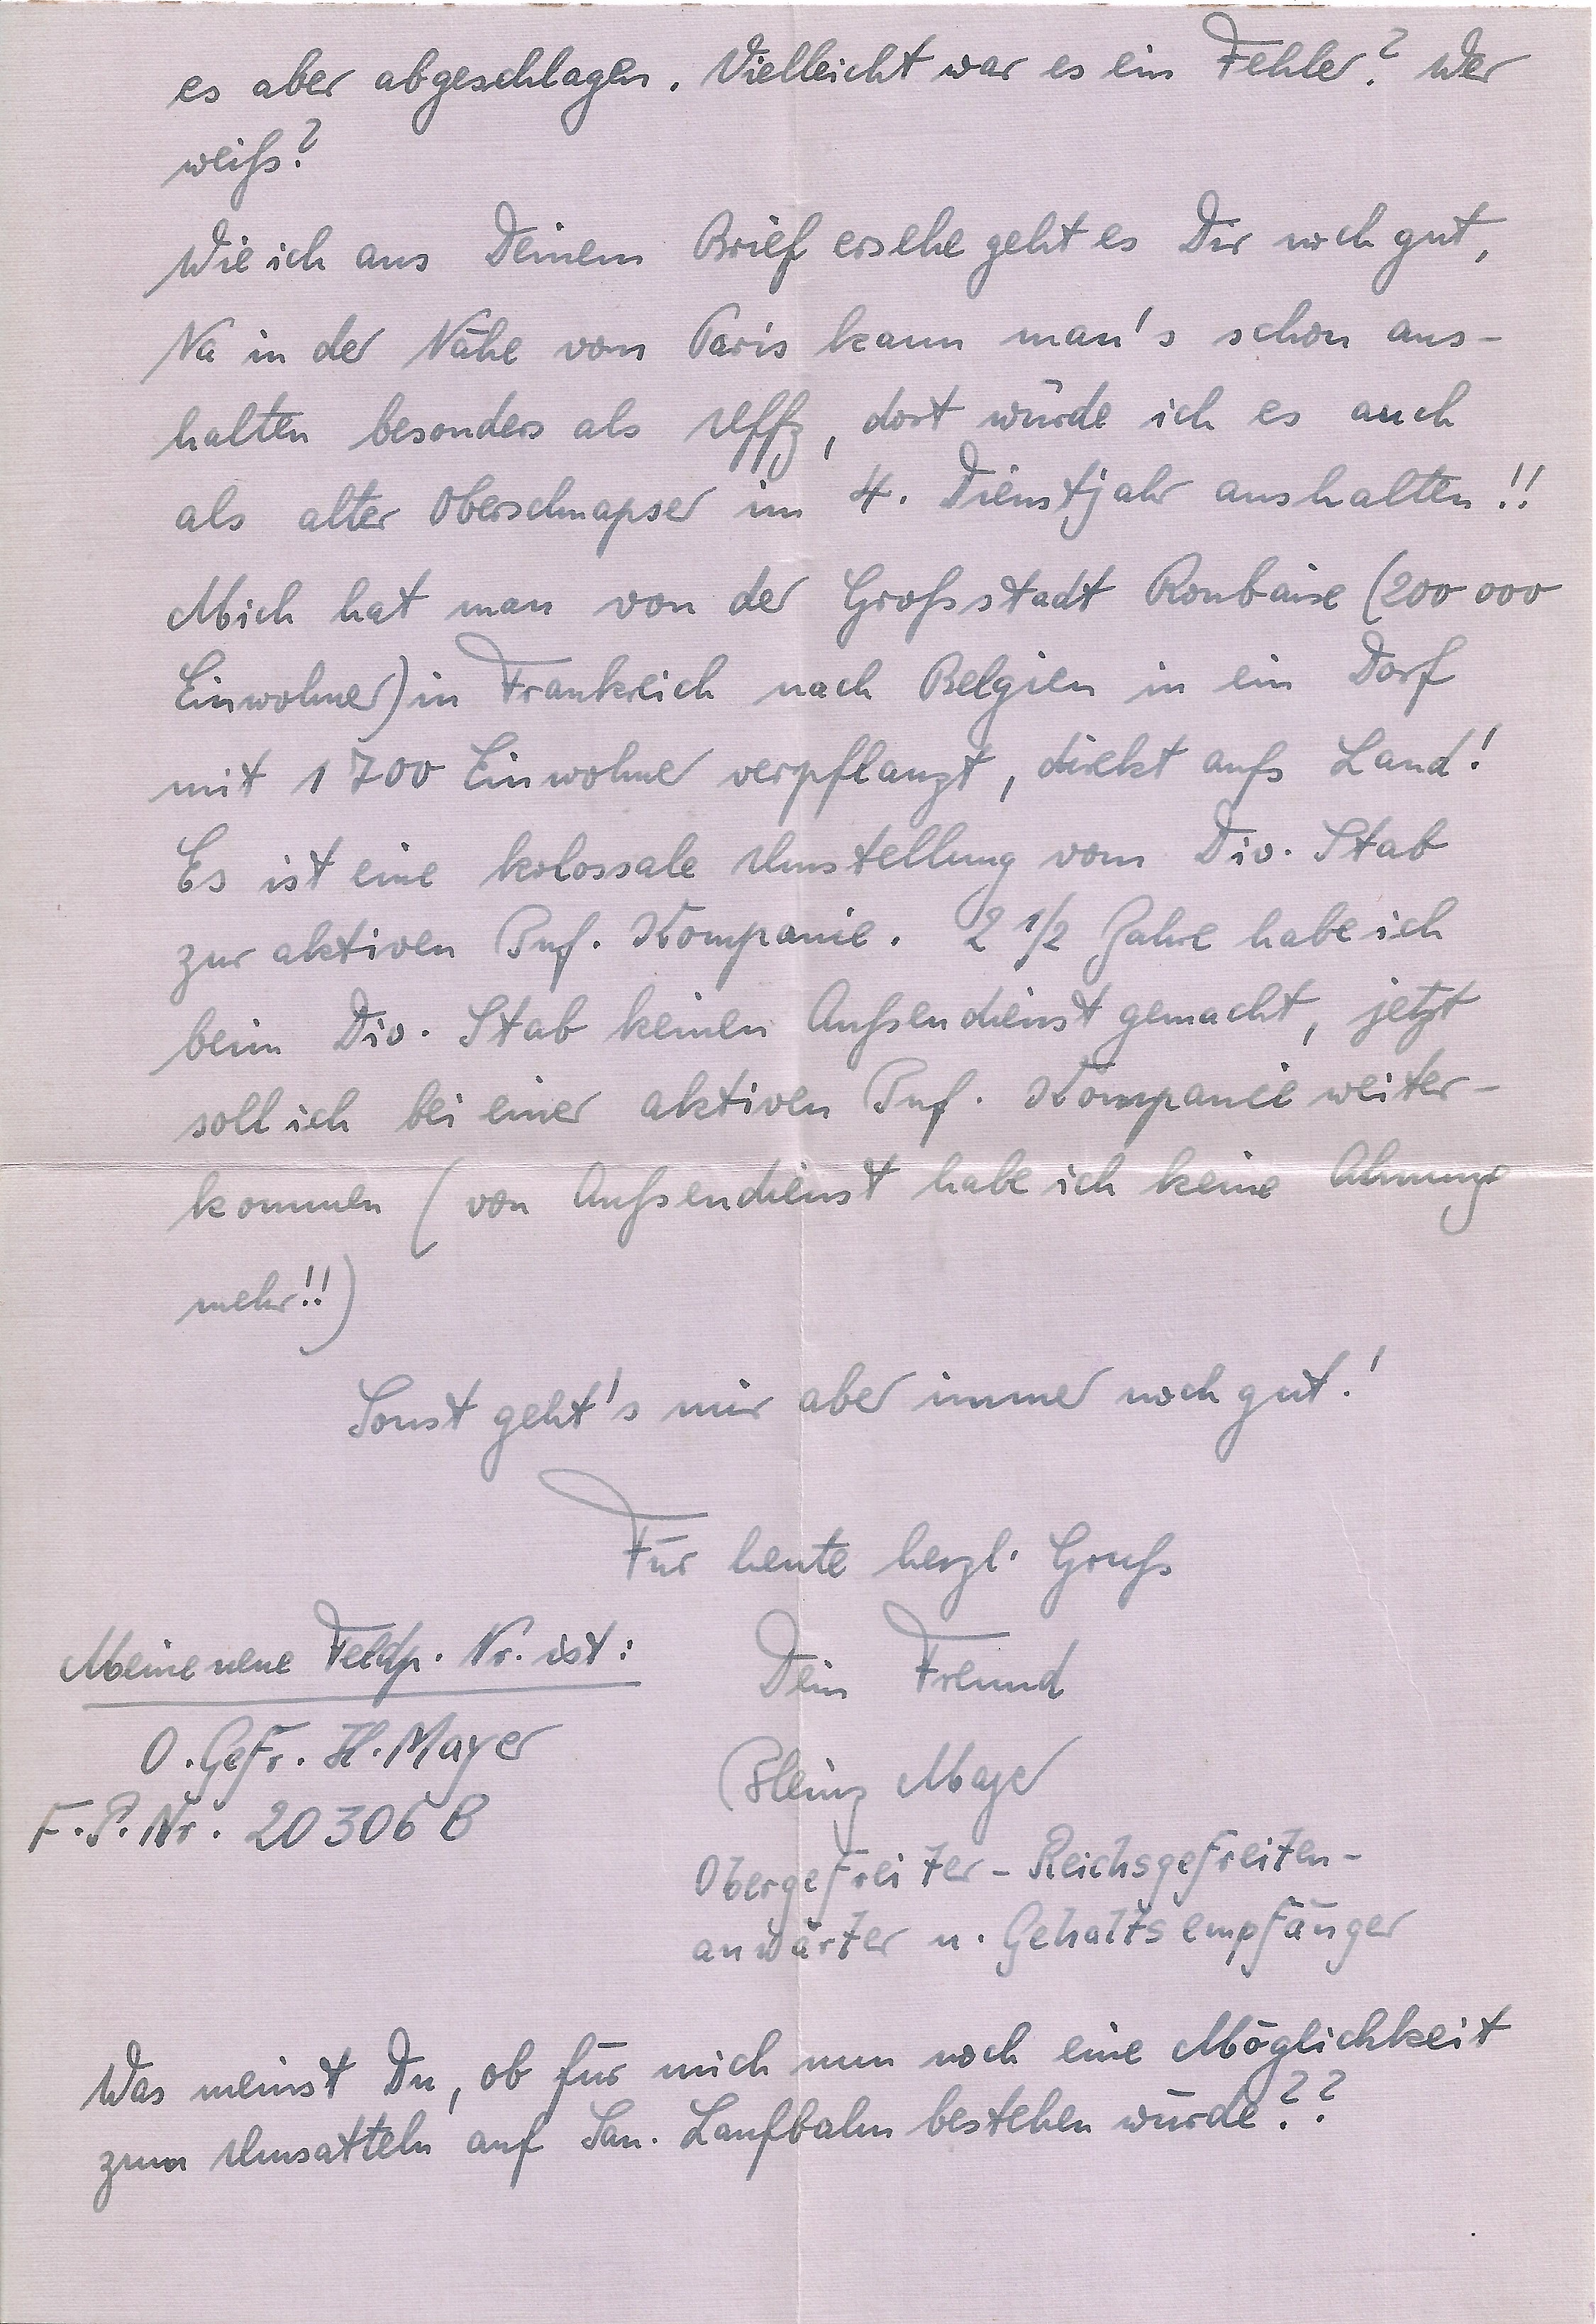 es aber abgeschlagen. Vielleicht war es ein Fehler? Wer
weiß?
Wie ich aus Deinem Brief ersehe geht es Dir noch gut,
Na in der Nähe von Paris kann man's schon aus-
halten besonders als Uffz, dort würde ich es auch
als alter Oberschnapser im 4. Dienstjahr aushalten!!
Mich hat man von der Großstadt Roubaise (200 000
Einwohner) in Frankreich nach Belgien in ein Dorf
mit 1700 Einwohner verpflanzt, direkt aufs Land!
Es ist eine kolossale Umstellung vom Div. Stab
zur aktiven Inf. Kompanie. 2 1/2 Jahre habe ich
beim Div. Stab keinen Außendienst gemacht, jetzt
soll ich bei einer aktiven Inf. Kompanie weiter-
kommen (von Außendienst habe ich keine Ahnung
mehr!!)
Sonst geht's mir aber immer noch gut!
Für heute herzl. Gruß
Dein Freund
Heinz Mayer
Obergefreiter - Reichsgefreiten-
anwärter u. Gehaltsempfänger
Meine neue Feldp. Nr. ist:
O. Gefr. H. Mayer
F.P. Nr. 20306 B
Was meinst Du, ob für mich nun noch eine Möglichkeit
zum Umsatteln auf San. Laufbahn bestehen würde??